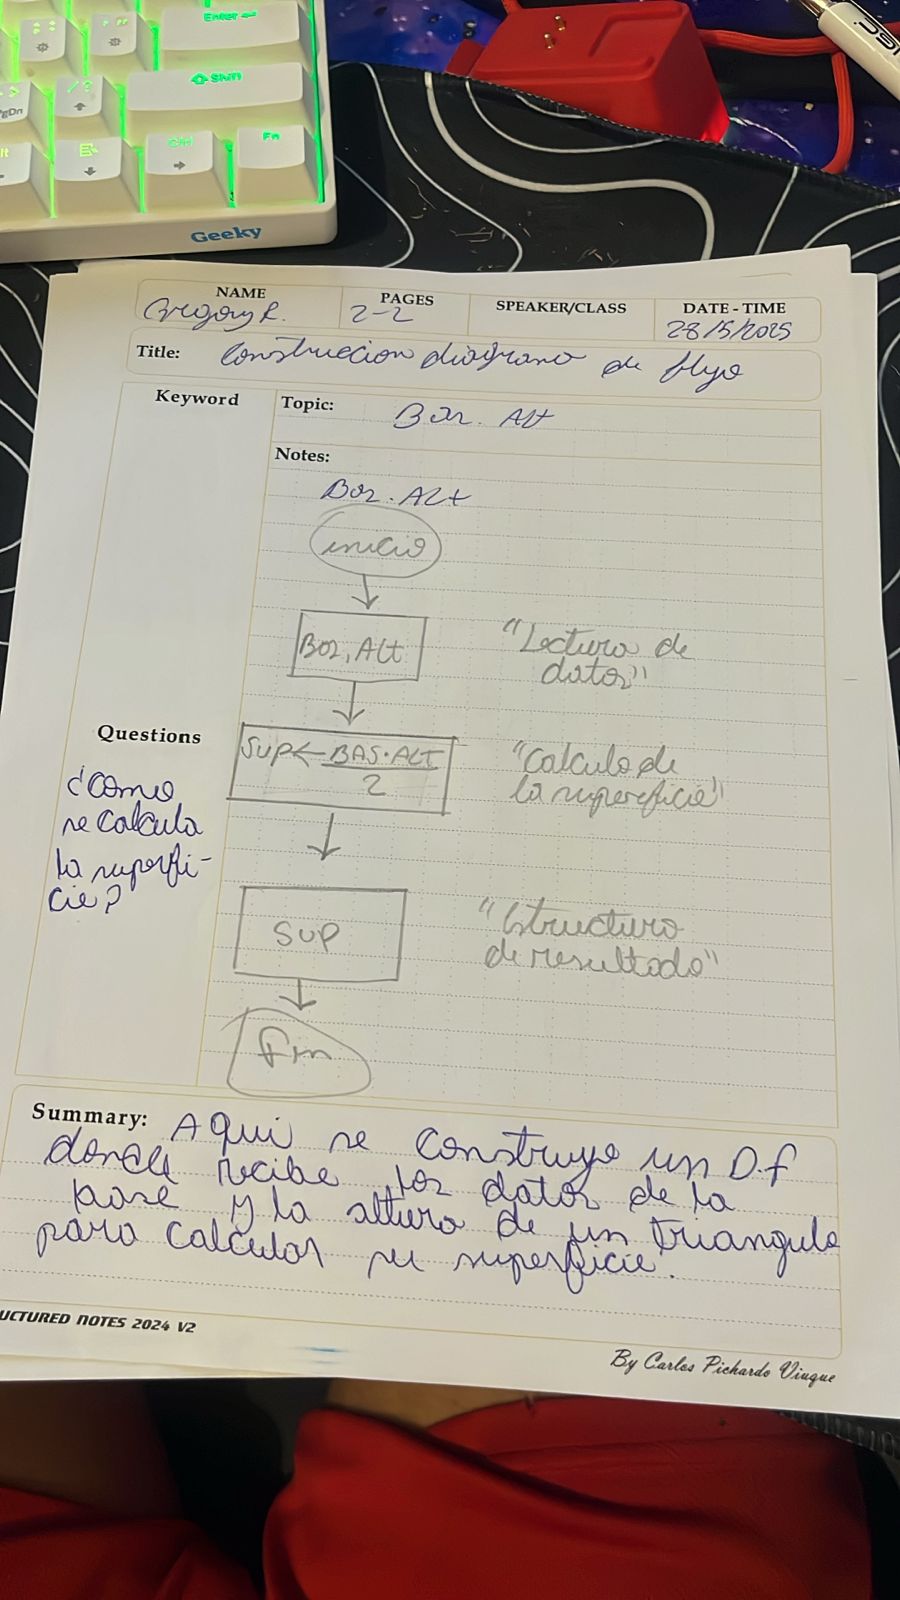 Enter
Shift
PgDn
Fn
Geeky
NAME
Gregory R.
PAGES
2-2
SPEAKER/CLASS
DATE - TIME
28/5/2025
Title: Construccion diagrama de flujo
Keyword
Topic: Bas. Alt
Notes:
Bas. Alt
inicio
Bas, Alt
"Lectura de
datos"
SUP← BAS·ALT
2
"Calculo de
la superficie"
Questions
¿Como
se calcula
la superfi-
cie?
SUP
"Estructura
de resultado"
Fin
Summary: Aqui se construye un D.f
donde recibe los datos de la
base y la altura de un triangulo
para calcular su superficie.
UCTURED NOTES 2024 V2
By Carlos Pichardo Viuque